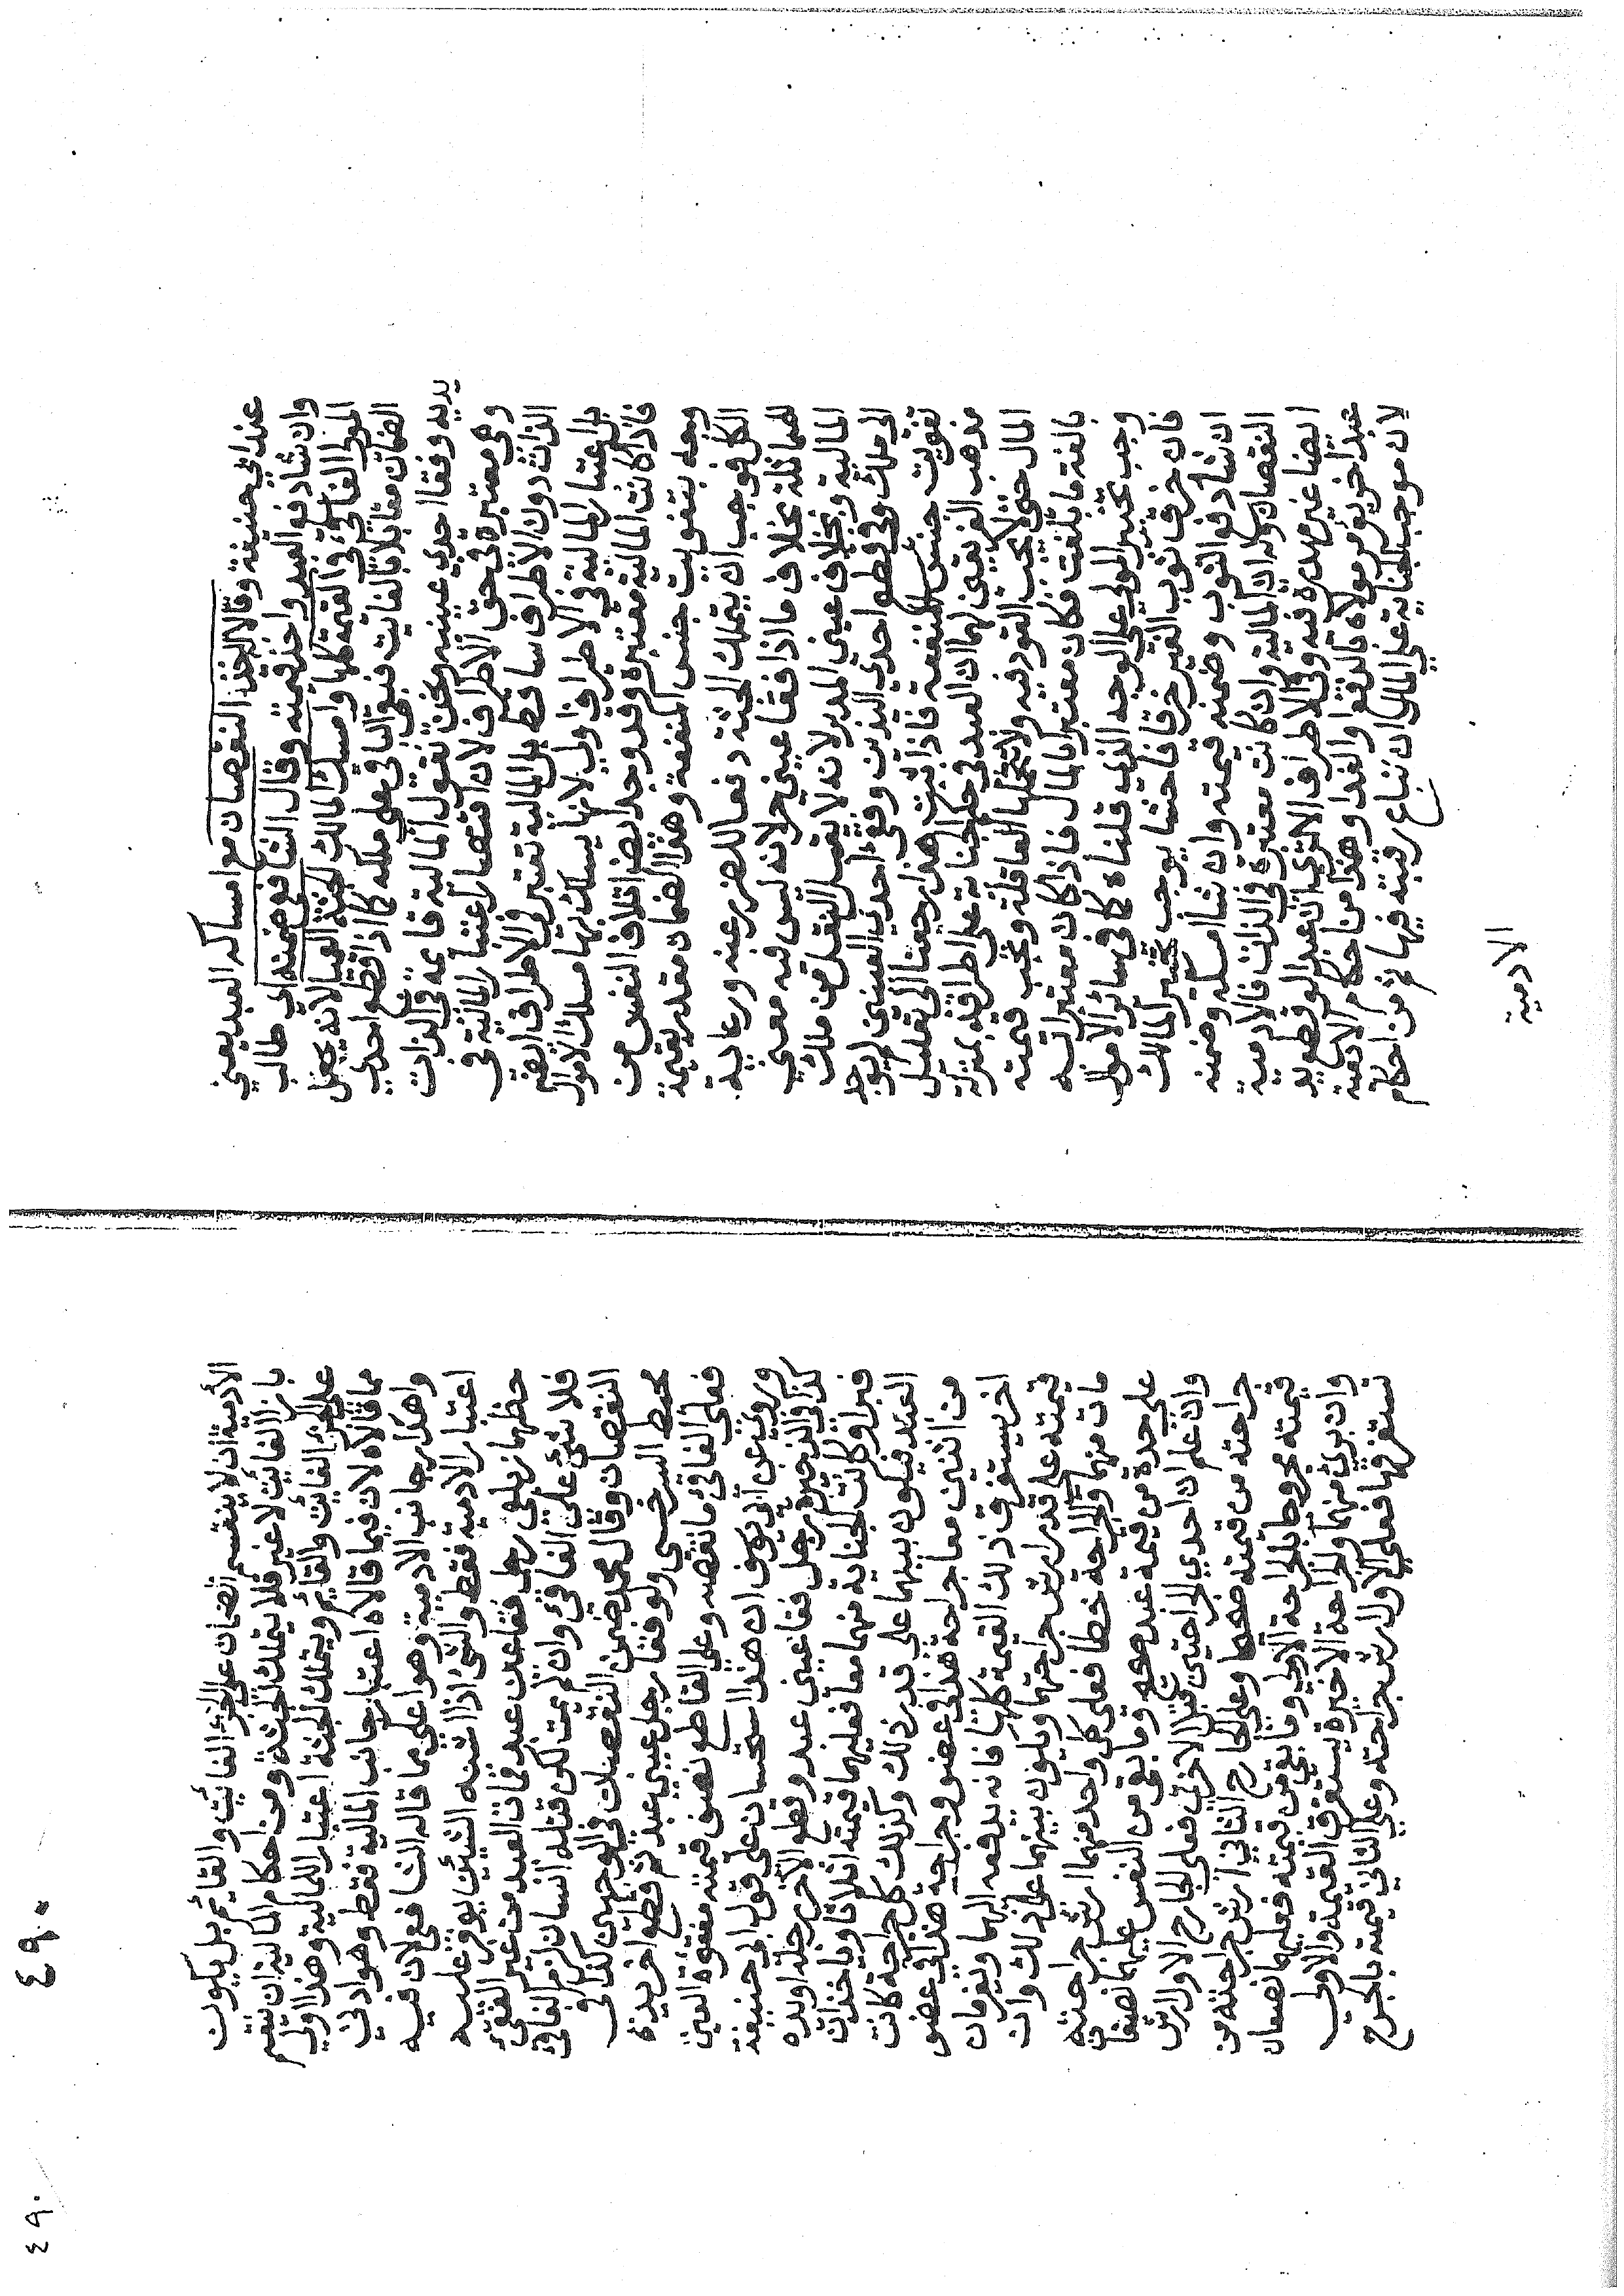 عند ابي حنيفة وقالا اخذ النقصان مع امساكه العبد يعني
وان شاء دفع العبد واخذ قيمته وقال الشافعي ضمنه اي طالب
المولى الفاقئ القيمة كلها وامسك المالك الجثة العميا لانه يجعل
الضمان مقابلا بالفايت فبقي الباقي على ملكه كما اذا قطع احدي
يديه وفقا احدي عينيه ونحن نقول المالية قايمة في الذات
وهي معتبرة في حق الاطراف لان اقتصار اعتبار المالية في
الذات دون الاطراف ساقط بل المالية تعتبر في الاطراف ايضا
بل اعتبار المالية في الاطراف اولى لانها يسلك بها مسلك الاموال
فاذا كانت المالية معتبرة وقد وجد ايضا اتلاف النفس من
وجه بتفويت جنس المنفعة وهذا الضمان مقدر بقيمة
الكل فوجب ان يتملك الجثة دفعا للضرر عنه ورعاية
للمماثلة بخلاف ما اذا فقا عيني حر لانه ليس فيه معنى
المالية وبخلاف عيني المدبر لانه لا يقبل النقل من ملك
الى ملك وفي قطع احدي اليدين وفقئ احدي العينين لم يوجد
تفويت جنس المنفعة فاذا ثبت هذا رجعنا الى تعليل
مذهب الفريقين لهما ان العبد في حكم الجناية على اطرافه بمنزلة
المال حتى لا يجب القود فيه ولا تتحملها العاقلة وتجب قيمته
بالغة ما بلغت فكان معتبرا بالمال فاذا كان معتبرا به
وجب تخيير المولى على الوجه الذي قلناه كما في سائر الاموال
فان خرق ثوب الغير خرقا فاحشا يوجب تخيير المالك
ان شاء دفع الثوب وضمنه قيمته وان شاء امسكه وضمنه
النقصان وله ان المالية وان كانت معتبرة في الذات فالادمية
ايضا غير مهدرة فيه وفي الاطراف الا ترى ان عبدا لو قطع يد
عبد اخر يؤمر مولاه بالدفع او الفداء وهذا من احكام الادمية
لان موجب الجناية على المال ان تباع رقبته فيها ثم من احكام
الادمية
الادمية ان لا ينقسم الضمان على الجزء الفائت والقائم بل يكون
بازاء الفائت لا غير فلا يتملك الجثة ومن احكام المالية ان تنقسم
على الجزء الفائت والقايم ويتملك الجثة اعتبارا للمالية وهذا اولى
مما قالاه لان فيما قالاه اعتبار جانب المالية فقط وهو ادنى
واهدار جانب الادمية وهو اعلى مما قاله الشافعي لان فيه
اعتبار الادمية فقط والشئ اذا اشبه الشيئين يوفر عليه
حظهما زيلعي رجل فقا عين عبد فمات العبد من غير الفقئ
فلا شئ على الفاقئ وان لم يمت لكن قتله انسان لزم الفاقئ
النقصان وقال محمد ضمن النقصان في الوجهين كذا في
محيط السرخسي ولو فقا رجل عيني عبد ثم قطع اخر يده
فعلى الفاقئ ما نقصه وعلى القاطع نصف قيمته مفقوء العين
وروي عن ابي يوسف ان هذا استحسان على قول ابي حنيفة
كذا في الذخيرة رجل فقا عيني عبد وقطع الاخر رجله او يده
فبرا وكانت الجناية منهما معا فعليهما قيمته اثلاثا وياخذان
العبد فيكون بينهما على قدر ذلك وكذلك كل جراحة كانت
من اثنين معا جراحة هذا في عضو وجراحة هذا في عضو
اخر يستغرق ذلك القيمة كلها فانه يدفعه اليهما ويغرمان
قيمته على قدر ارش جراحتهما ويكون بينهما على ذلك وان
مات منهما والجراحة خطا فعلى كل واحد منهما ارش جراحته
على حدة من قيمة عبد صحيح وما بقي من النفس عليهما نصفان
وان علم ان احدي الجراحتين قبل الاخرى فعلى الجارح الاول ارش
جراحته من قيمته صحيحا وعلى الجارح الثاني ارش جراحته من
قيمته مجروحا بالجراحة الاولى وما بقي من قيمته فعليهما نصفان
وان برئ منهما والجراحة الاخيرة يستغرق القيمة والاولى
تستغرقها فعلى الاول ارش جراحته وعلى الثاني قيمته بالجرح
٤٩٠
٤٩٠